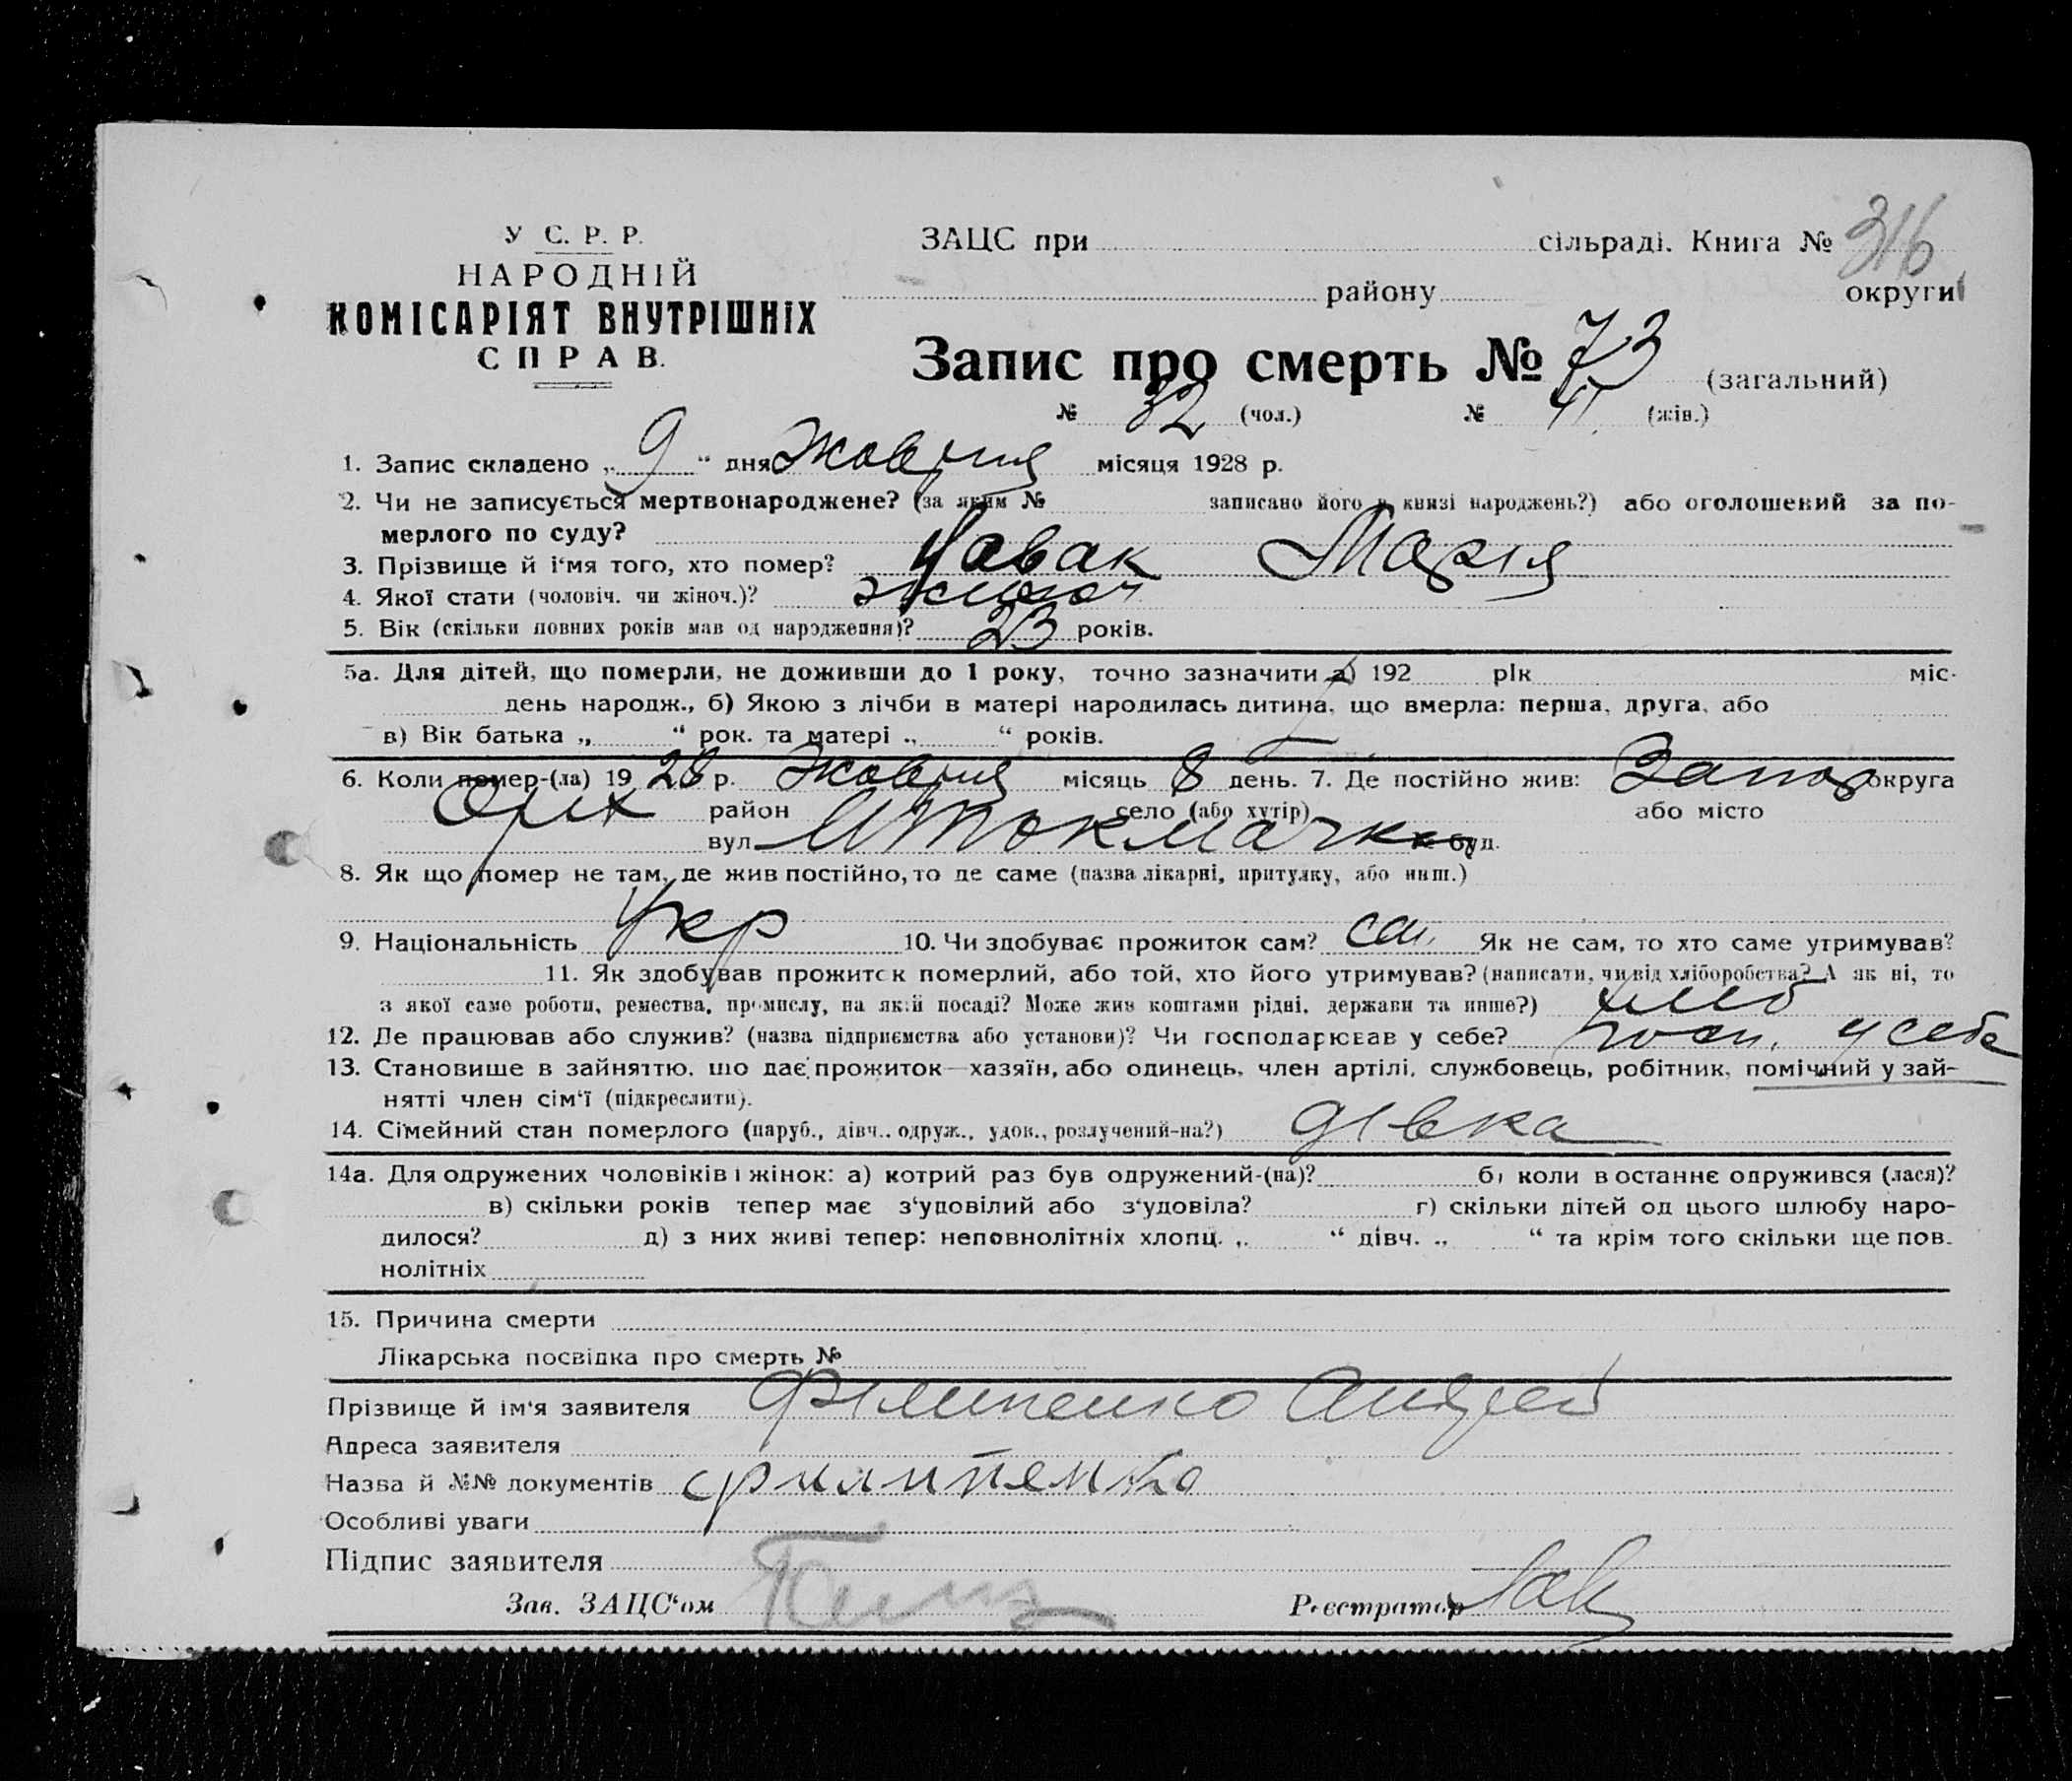 У С. Р. Р.
НАРОДНІЙ
КОМІСАРІЯТ ВНУТРІШНІХ
СПРАВ.
ЗАЦС при сільраді. Книга № 316
району округи
Запис про смерть № 73 (загальний)
№ 32 (чол.) № 41 (жів.)
1. Запис складено „ 9 “ дня Жовтня місяця 1928 р.
2. Чи не записується мертвонароджене? (за яким № записано його в книзі народжень?) або оголошений за по-
мерлого по суду?
3. Прізвище й і‘мя того, хто помер? Марія
4. Якої стати (чоловіч. чи жіноч.)? жіноч
5. Вік (скільки повних років мав од народження)? 23 років.
5а. Для дітей, що померли, не доживши до 1 року, точно зазначити а) 192 рік міс.
день народж., б) Якою з лічби в матері народилась дитина, що вмерла: перша, друга, або
в) Вік батька „ “ рок. та матері „ “ років.
6. Коли помер-(ла) 19 28 р. Жовтня місяць 8 день. 7. Де постійно жив: Запор округа
Оріх район село (або хутір) або місто
вул. МТокмачка буд.
8. Як що помер не там, де жив постійно, то де саме (назва лікарні, притулку, або инш.)
9. Національність Укр 10. Чи здобуває прожиток сам? сам Як не сам, то хто саме утримував?
11. Як здобував прожиток померлий, або той, хто його утримував? (написати, чи від хліборобства? А як ні, то
з якої саме роботи, ремества, промислу, на якій посаді? Може жив коштами рідні, держави та инше?) хліб
12. Де працював або служив? (назва підприємства або установи)? Чи господарював у себе? госп. у себе
13. Становище в зайняттю, що дає прожиток—хазяїн, або одинець, член артілі, службовець, робітник, помічний у зай-
нятті член сім‘ї (підкреслити).
14. Сімейний стан померлого (паруб., дівч., одруж., удов., розлучений-на?) дівка
14а. Для одружених чоловіків і жінок: а) котрий раз був одружений-(на)? б) коли в останнє одружився (лася)?
в) скільки років тепер має з‘удовілий або з‘удовіла? г) скільки дітей од цього шлюбу наро-
дилося? д) з них живі тепер: неповнолітніх хлопц. „ “ дівч. „ “ та крім того скільки ще пов.
нолітніх
15. Причина смерти
Лікарська посвідка про смерть №
Прізвище й ім‘я заявителя Філипенко Андрей
Адреса заявителя
Назва й №№ документів филипенко
Особливі уваги
Підпис заявителя
Зав. ЗАЦС‘ом Реєстратор